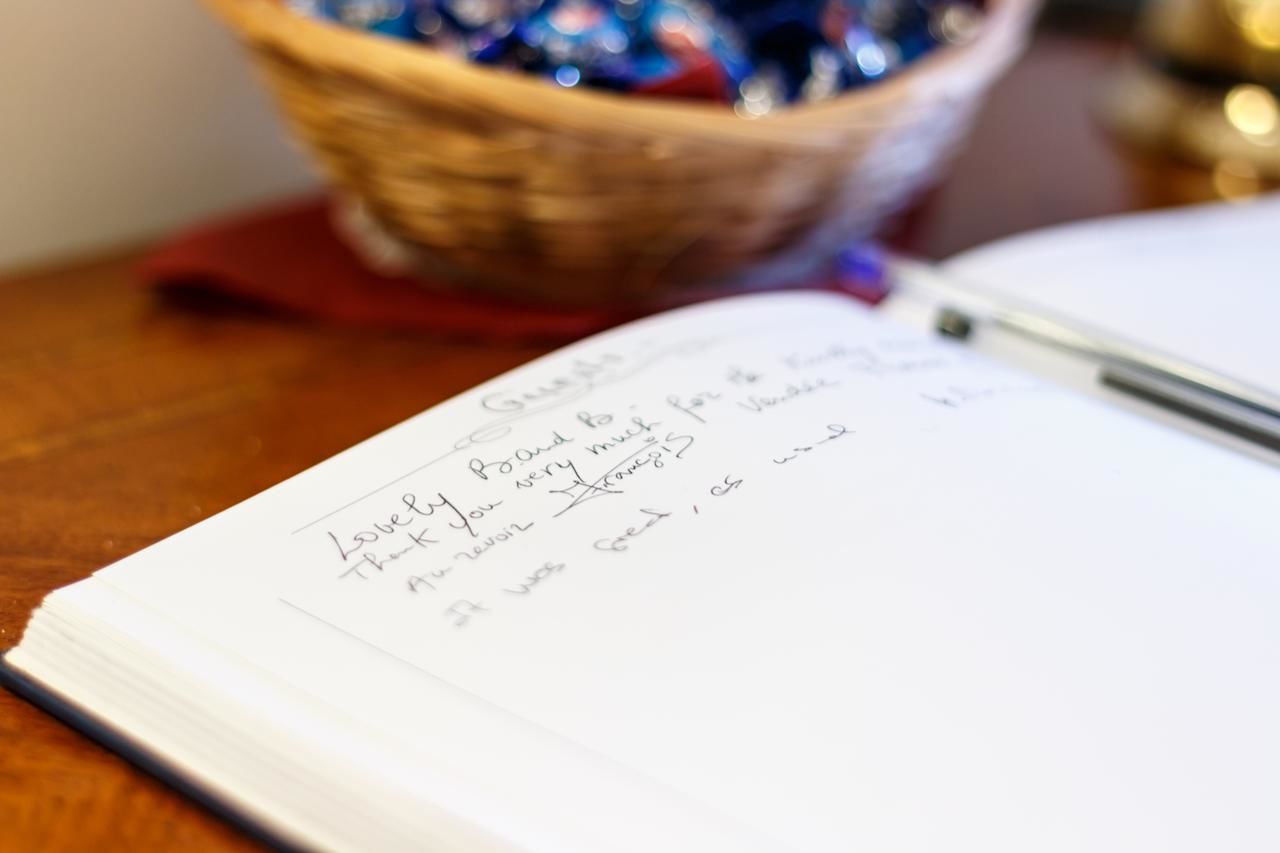 Guests
Lovely B.and B.
Thank you very much for the
Au revoir François Vendée
It was Great, as usual